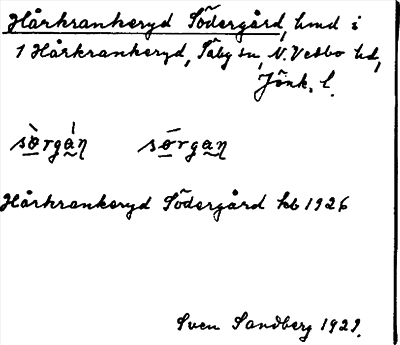 Hårkrankeryd Södergård, hmd i
1 Hårkrankeryd, Säby sn, N. Vedbo hd,
Jönk. l.
sòrgán sōrgan
Hårkrankeryd Södergård kb 1926
Sven Sandberg 1929.